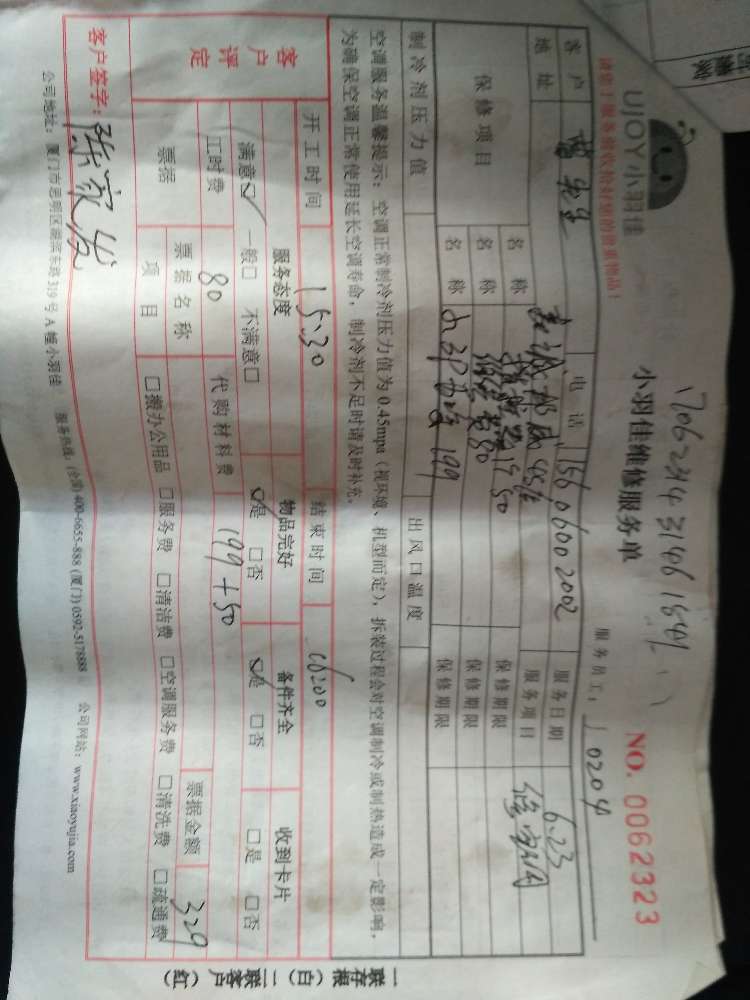 UJOY小羽佳
请您于服务前收拾好您的贵重物品!
小羽佳维修服务单
NO. 0062323
服务员工: 10204
客户 曾先生 电话 156 0600 2002 服务日期 6.23
地址 服务项目
保修项目 名称 保修期限
名称 保修期限
名称 199 保修期限
制冷剂压力值 出风口温度
空调服务温馨提示:空调正常制冷剂压力值为0.45mpa(视环境、机型而定),拆装过程会对空调制冷或制热造成一定影响,
为确保空调正常使用延长空调寿命,制冷剂不足时请及时补充。
开工时间 15:30 结束时间
客户评定 服务态度 物品完好 备件齐全 收到卡片
满意☑ 一般□ 不满意□ ☑是 □否 ☑是 □否 □是 □否
工时费 80 代购材料费 199+50
票据 票据名称 票据金额 329
项目 □搬办公用品 □服务费 □清洁费 □空调服务费 □清洗费 □疏通费
客户签字:
公司地址:厦门市思明区湖滨东路319号A幢小羽佳 服务热线:(全国)400-6655-888 (厦门)0592-5178888 公司网站:www.xiaoyujia.com
一联存根(白)二联客户(红)